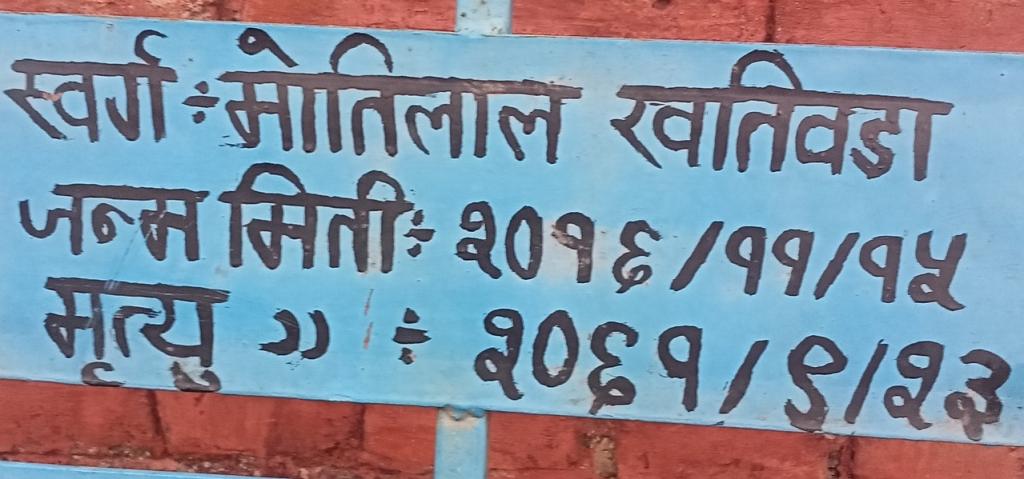 स्वर्ग ÷ मोतिलाल रवतिवडा
जन्म मिती ÷ २०१६/११/१५
मृत्यु ,, ÷ २०६१/९/२३